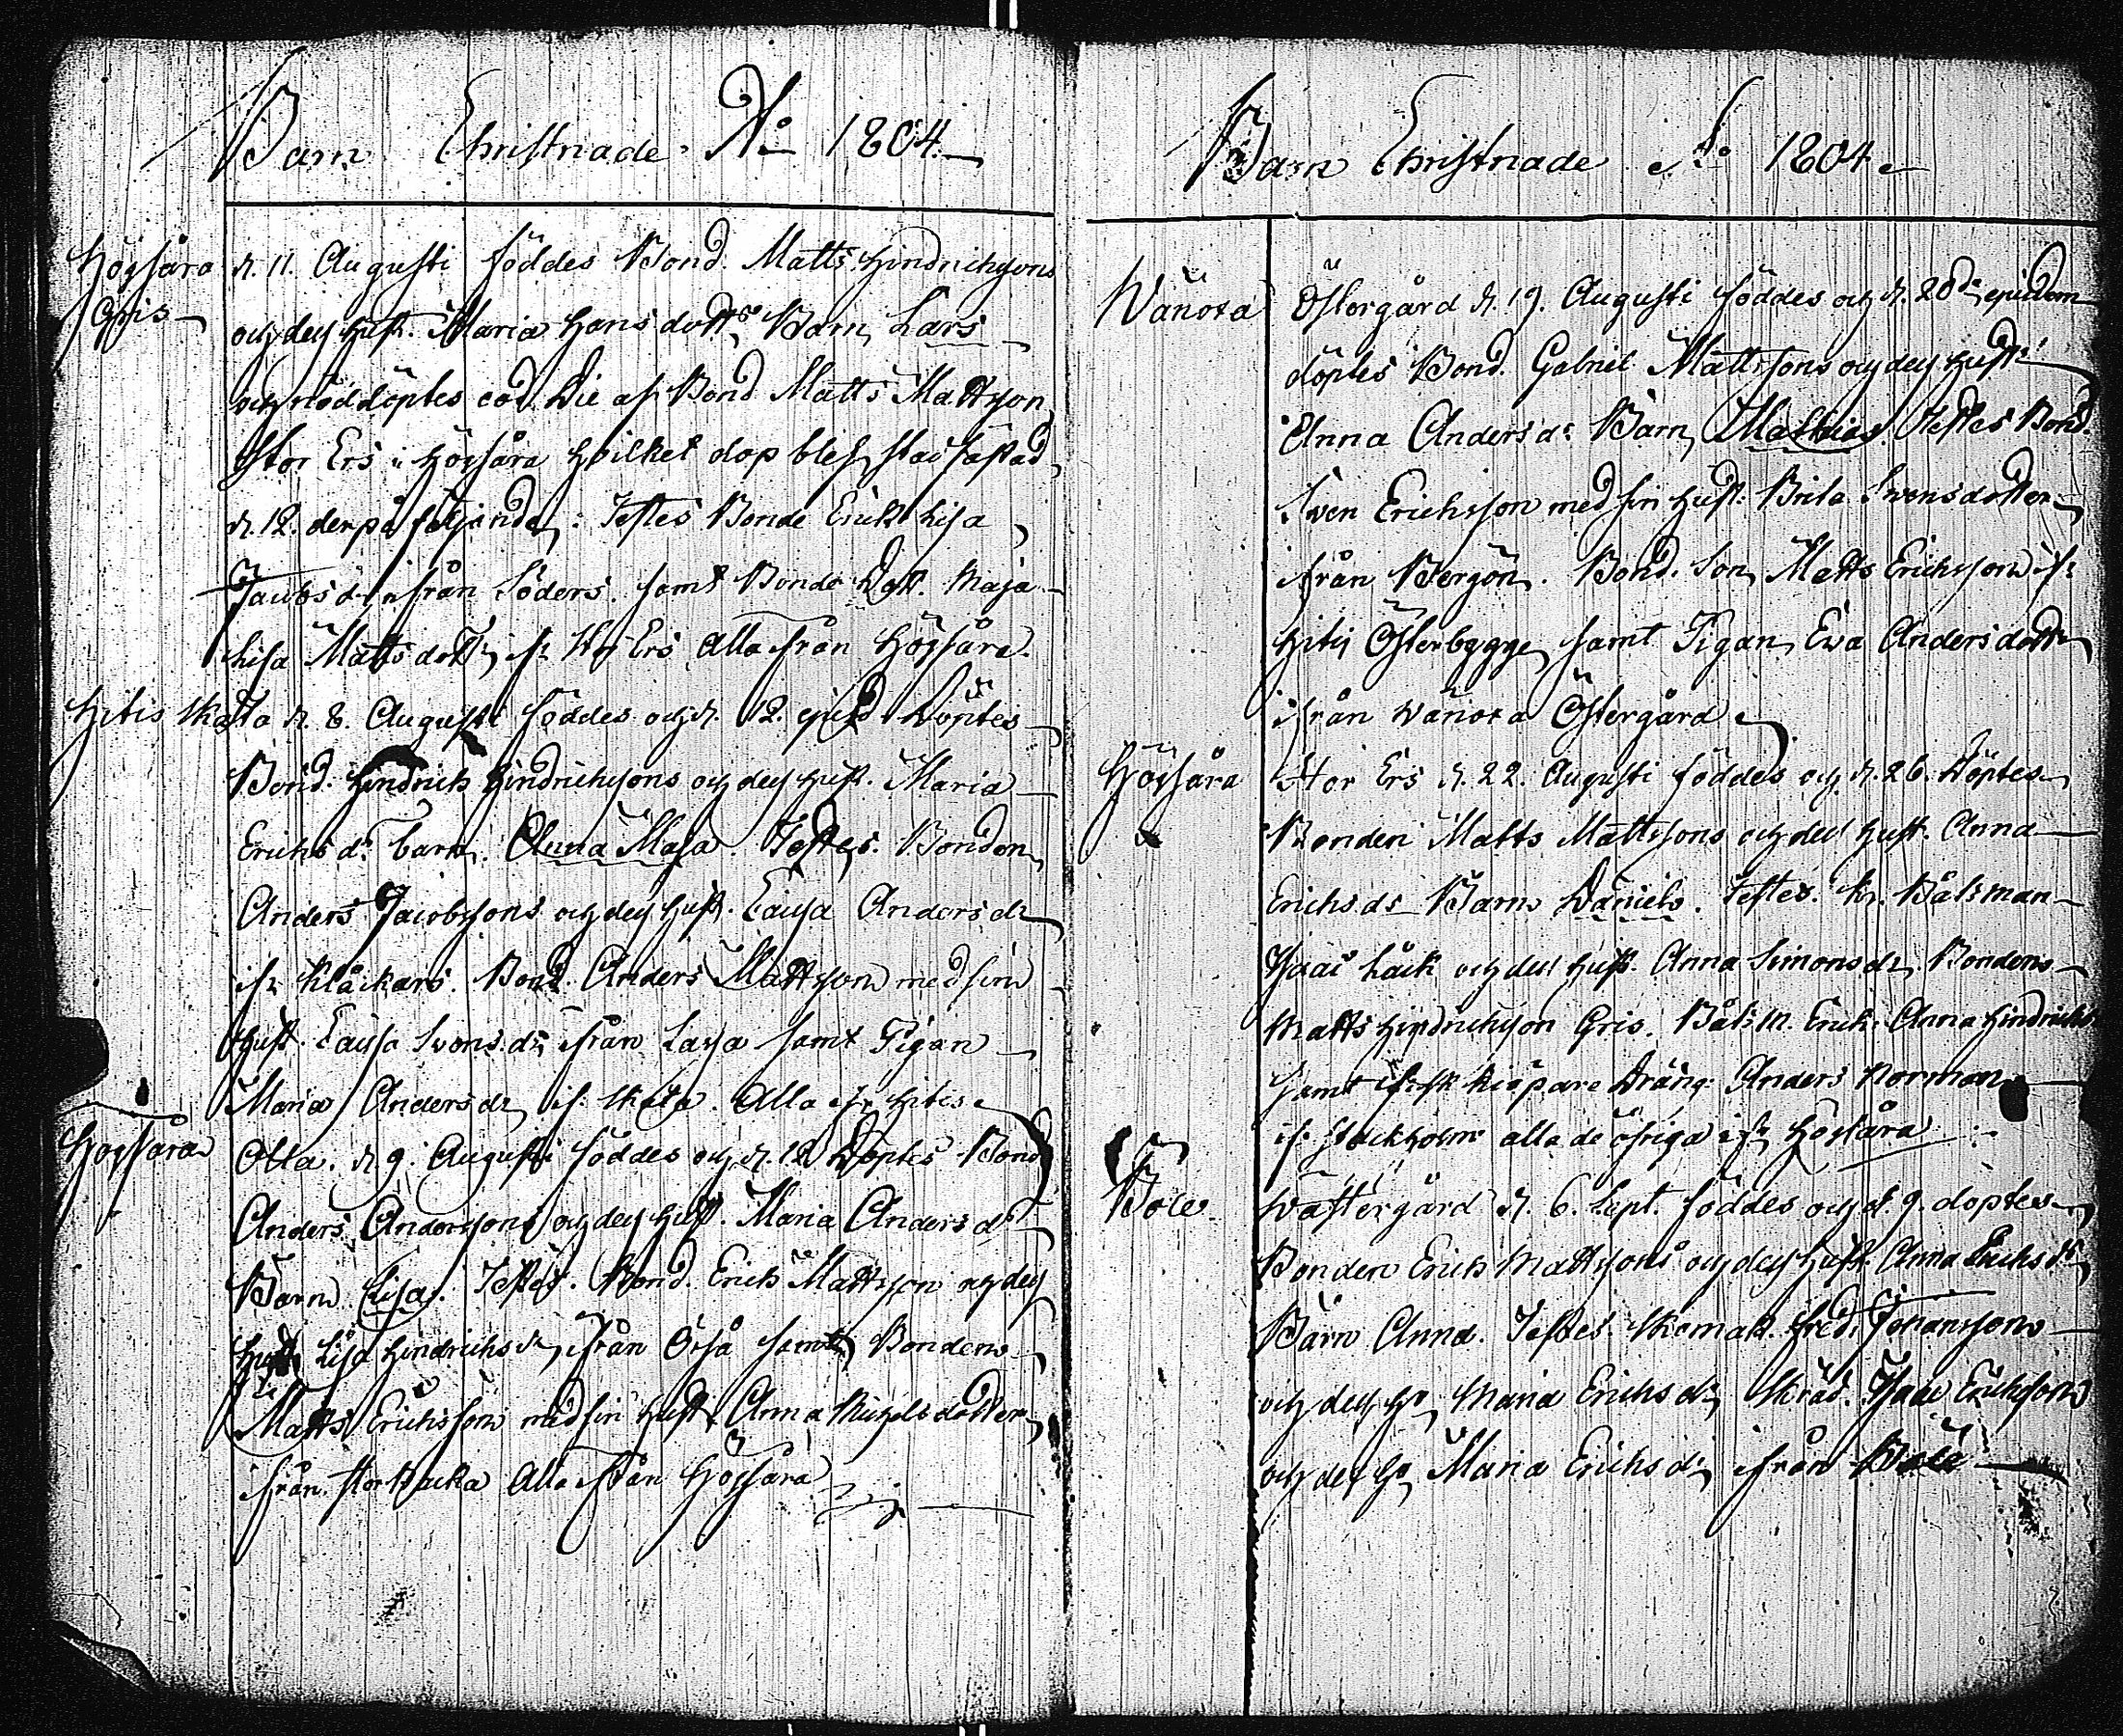 Barn Christnade Ao 1804.
Högsåra d. 11. Augusti föddes Bond. Matts Hindrichsons
Gris och des hust. Maria Hansdottr Barn, Lars
och nöddöptes eod. Die af Bond Matts Mattson
Stor Ers i Högsåra hvilket dop blef stadfästad
d. 12. derpå följande: Testes Bonde Erich Lisa
Jacobs dr ifrån Söders. samt Bonde Dott. Maja
Lisa Matts dottr if: Stor Ers alla från Högsåra.
Hitis Skata d. 8. Augusti föddes och d. 12. ejusd. döptes
Bond. Hindrich Hindrichsons och des hust. Maria
Erichs dr barn. Anna Maja. Testes. Bonden
Anders Jacobssons och des hust. Caisa Anders dr
ifr Klåckars. Bond. Anders Mattson med sin
hust. Caisa Svens dr ifrån Lassa samt Pigan
Maria Anders dr if. Skata. Alla ifr Hitis.
Högsåra Olla. d. 9. Augusti föddes och d. 12 döptes Bond
Anders Anderssons och des hust. Maria Anders dr
Barn Lisa. Testes. Bond. Erich Mattson och des
hust. Lisa Hindrichs dr ifrån Örså samt Bonden
Matts Erichsson med sin hust. Anna Michels dotter
ifrån Stor Backa Alla ifrån Högsåra
Barn Christnade Ao 1804.
Wänoxa Östergård d. 19. Augusti föddes och d. 20de ejusdem
döptes Bond. Gabriel Mattssons och des hustr
Anna Anders dr Barn, Mathias Testes Bond.
Sven Erichsson med sin hust: Brita Svensdotter
ifrån Bergön. Bond. Son, Matts Erichsson if:
Hitis Österbygge, samt Pigan, Ewa Andersdottr
ifrån Wänoxa Östergård
Högsåra Stor Ers d. 22. Augusti föddes och d. 26. döptes
Bonden Matts Mattssons och des hust. Anna
Erichs dr Barn Daniel. Testes. Båtsman
Isaac Låck och des hust. Anna Simons dr, Bonden
Matts Hindrichson Gris. Båtsm. Erich. Anna Hindrichs
samt fisk kiöpare Dräng. Anders Norman
if. Stockholm alla de öfriga ifr Högsåra
Böle Wästergård d. 6. Sept. föddes och d. 9. döptes
Bonden Erich Mattsons och des hust. Anna Erichs dr
Barn Anna. Testes. Skomak. Fred. Johansson
och des h. Maria Erichs dr, Skräd. Isaac Erichsson
och des h. Maria Erichs dr, ifrån Böle